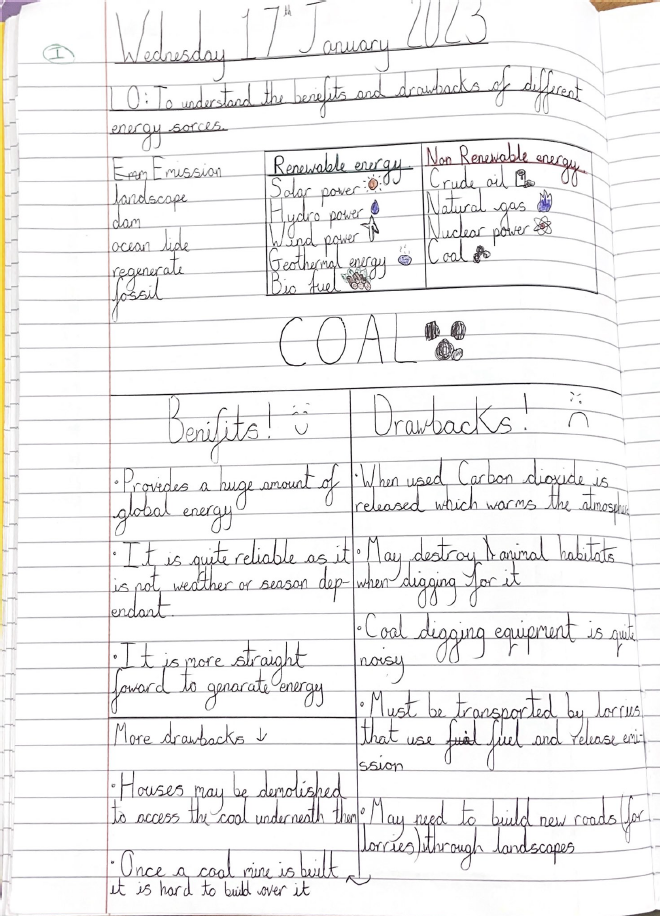 1
Wednesday 17th January 2023
LO: To understand the benefits and drawbacks of different
energy sorces.
Emm Emission
landscape
dam
ocean tide
regenerate
fossil
Renewable energy
Solar power
Hydro power
Wind power
Geothermal energy
Bio fuel
Non Renewable energy
Crude oil
Natural gas
Nuclear power
Coal
COAL
Benifits!
· Provides a huge amount of
global energy
· It is quite reliable as it
is not weather or season dep-
endant.
· It is more straight
foward to genarate energy
Drawbacks!
· When used Carbon dioxide is
released which warms the atmosphere
· May destroy animal habitats
when digging for it
· Coal digging equipment is quite
noisy
· Must be transported by lorries
that use fuel and release emi-
ssion
· May need to build new roads (for
lorries) through landscapes
More drawbacks ↓
· Houses may be demolished
to access the coal underneath them
· Once a coal mine is built
it is hard to build over it